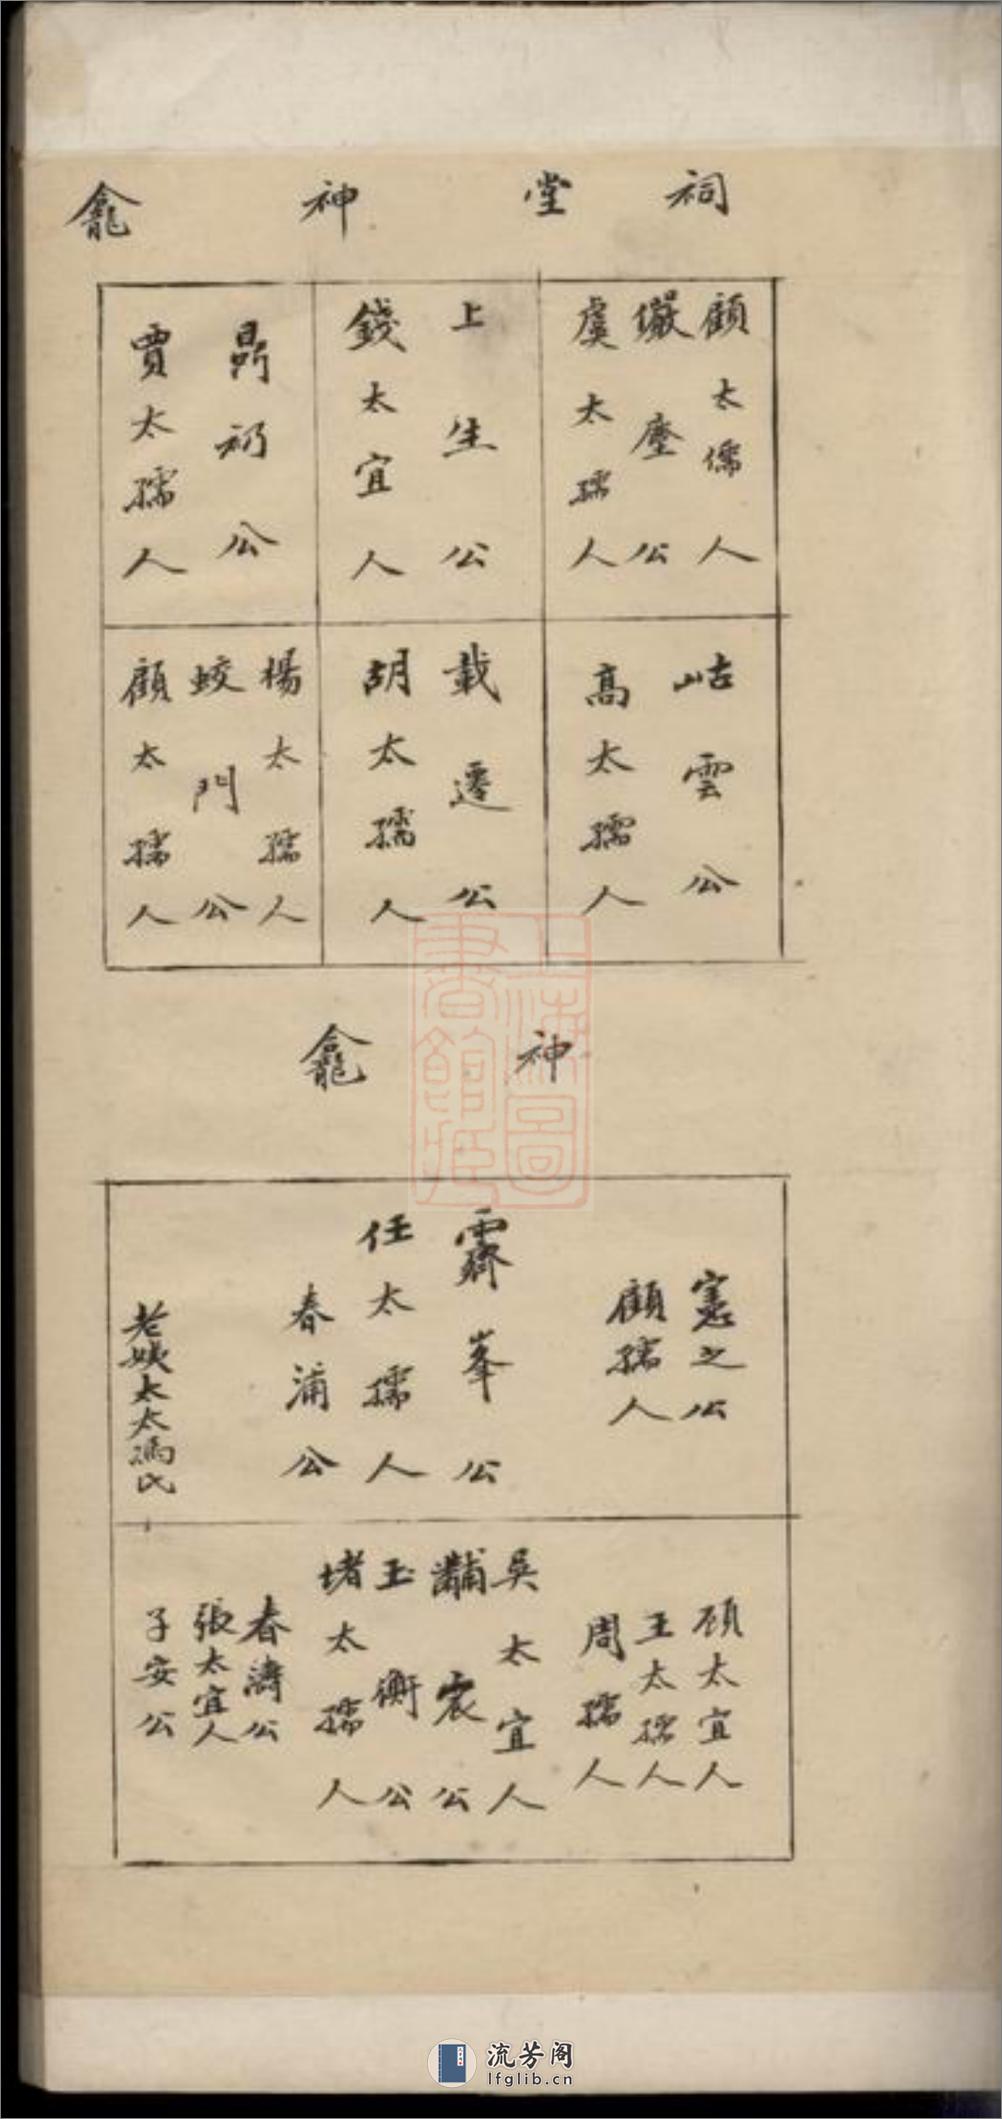 祠堂神龕
顧太儒人
儼塵公
虞太孺人
上生公
錢太宜人
礽公
賈太孺人
岵雲公
高太孺人
載遷公
胡太孺人
楊太孺人
蛟門公
顧太孺人
神龕
憲之公
顧孺人
霽峯公
任太孺人
春浦公
老姨太太馮氏
顾太宜人
王太孺人
周孺人
吳太宜人
黼宸公
玉衡公
堵太孺人
春濤公
張太宜人
子安公
上海圖書館藏
流芳阁
lfglib.cn